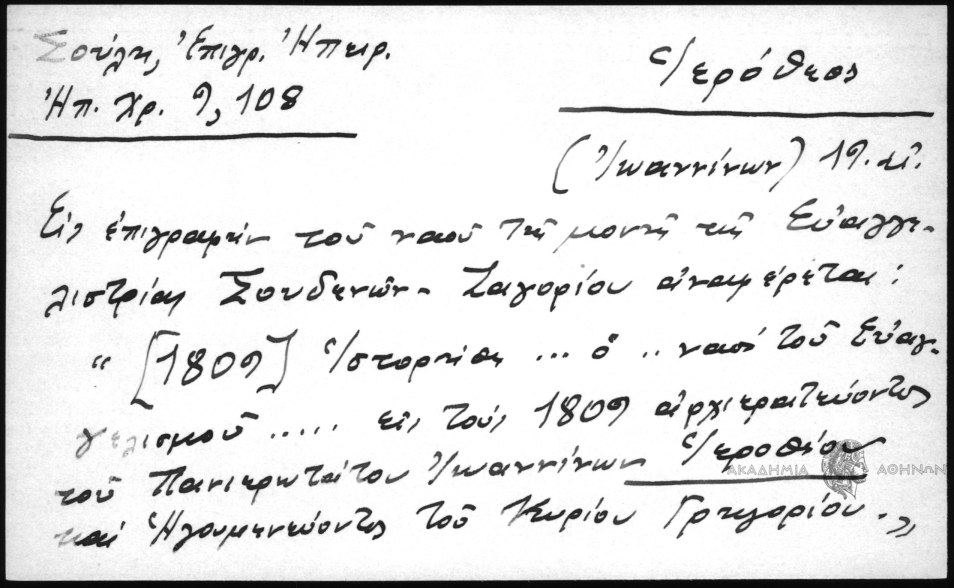 Σούλη, Ἐπιγρ. Ἠπειρ.
Ἠπ. Χρ. 9, 108
Ἱερόθεος
(Ἰωαννίνων) 19. αἰ.
Εἰς ἐπιγραφὴν τοῦ ναοῦ τῆς μονῆς τῆς Εὐαγγε-
λιστρίας Σουδενῶν - Ζαγορίου ἀναφέρεται:
“ [1809] Ἱστορήθη ... ὁ .. ναὸς τοῦ Εὐαγ-
γελισμοῦ ..... εἰς τοὺς 1809 ἀρχιερατεύοντος
τοῦ Πανιερωτάτου Ἰωαννίνων Ἱεροθέου
καὶ Ἡγουμενεύοντος τοῦ Κυρίου Γρηγορίου. „
ΑΚΑΔΗΜΙΑ ΑΘΗΝΩΝ